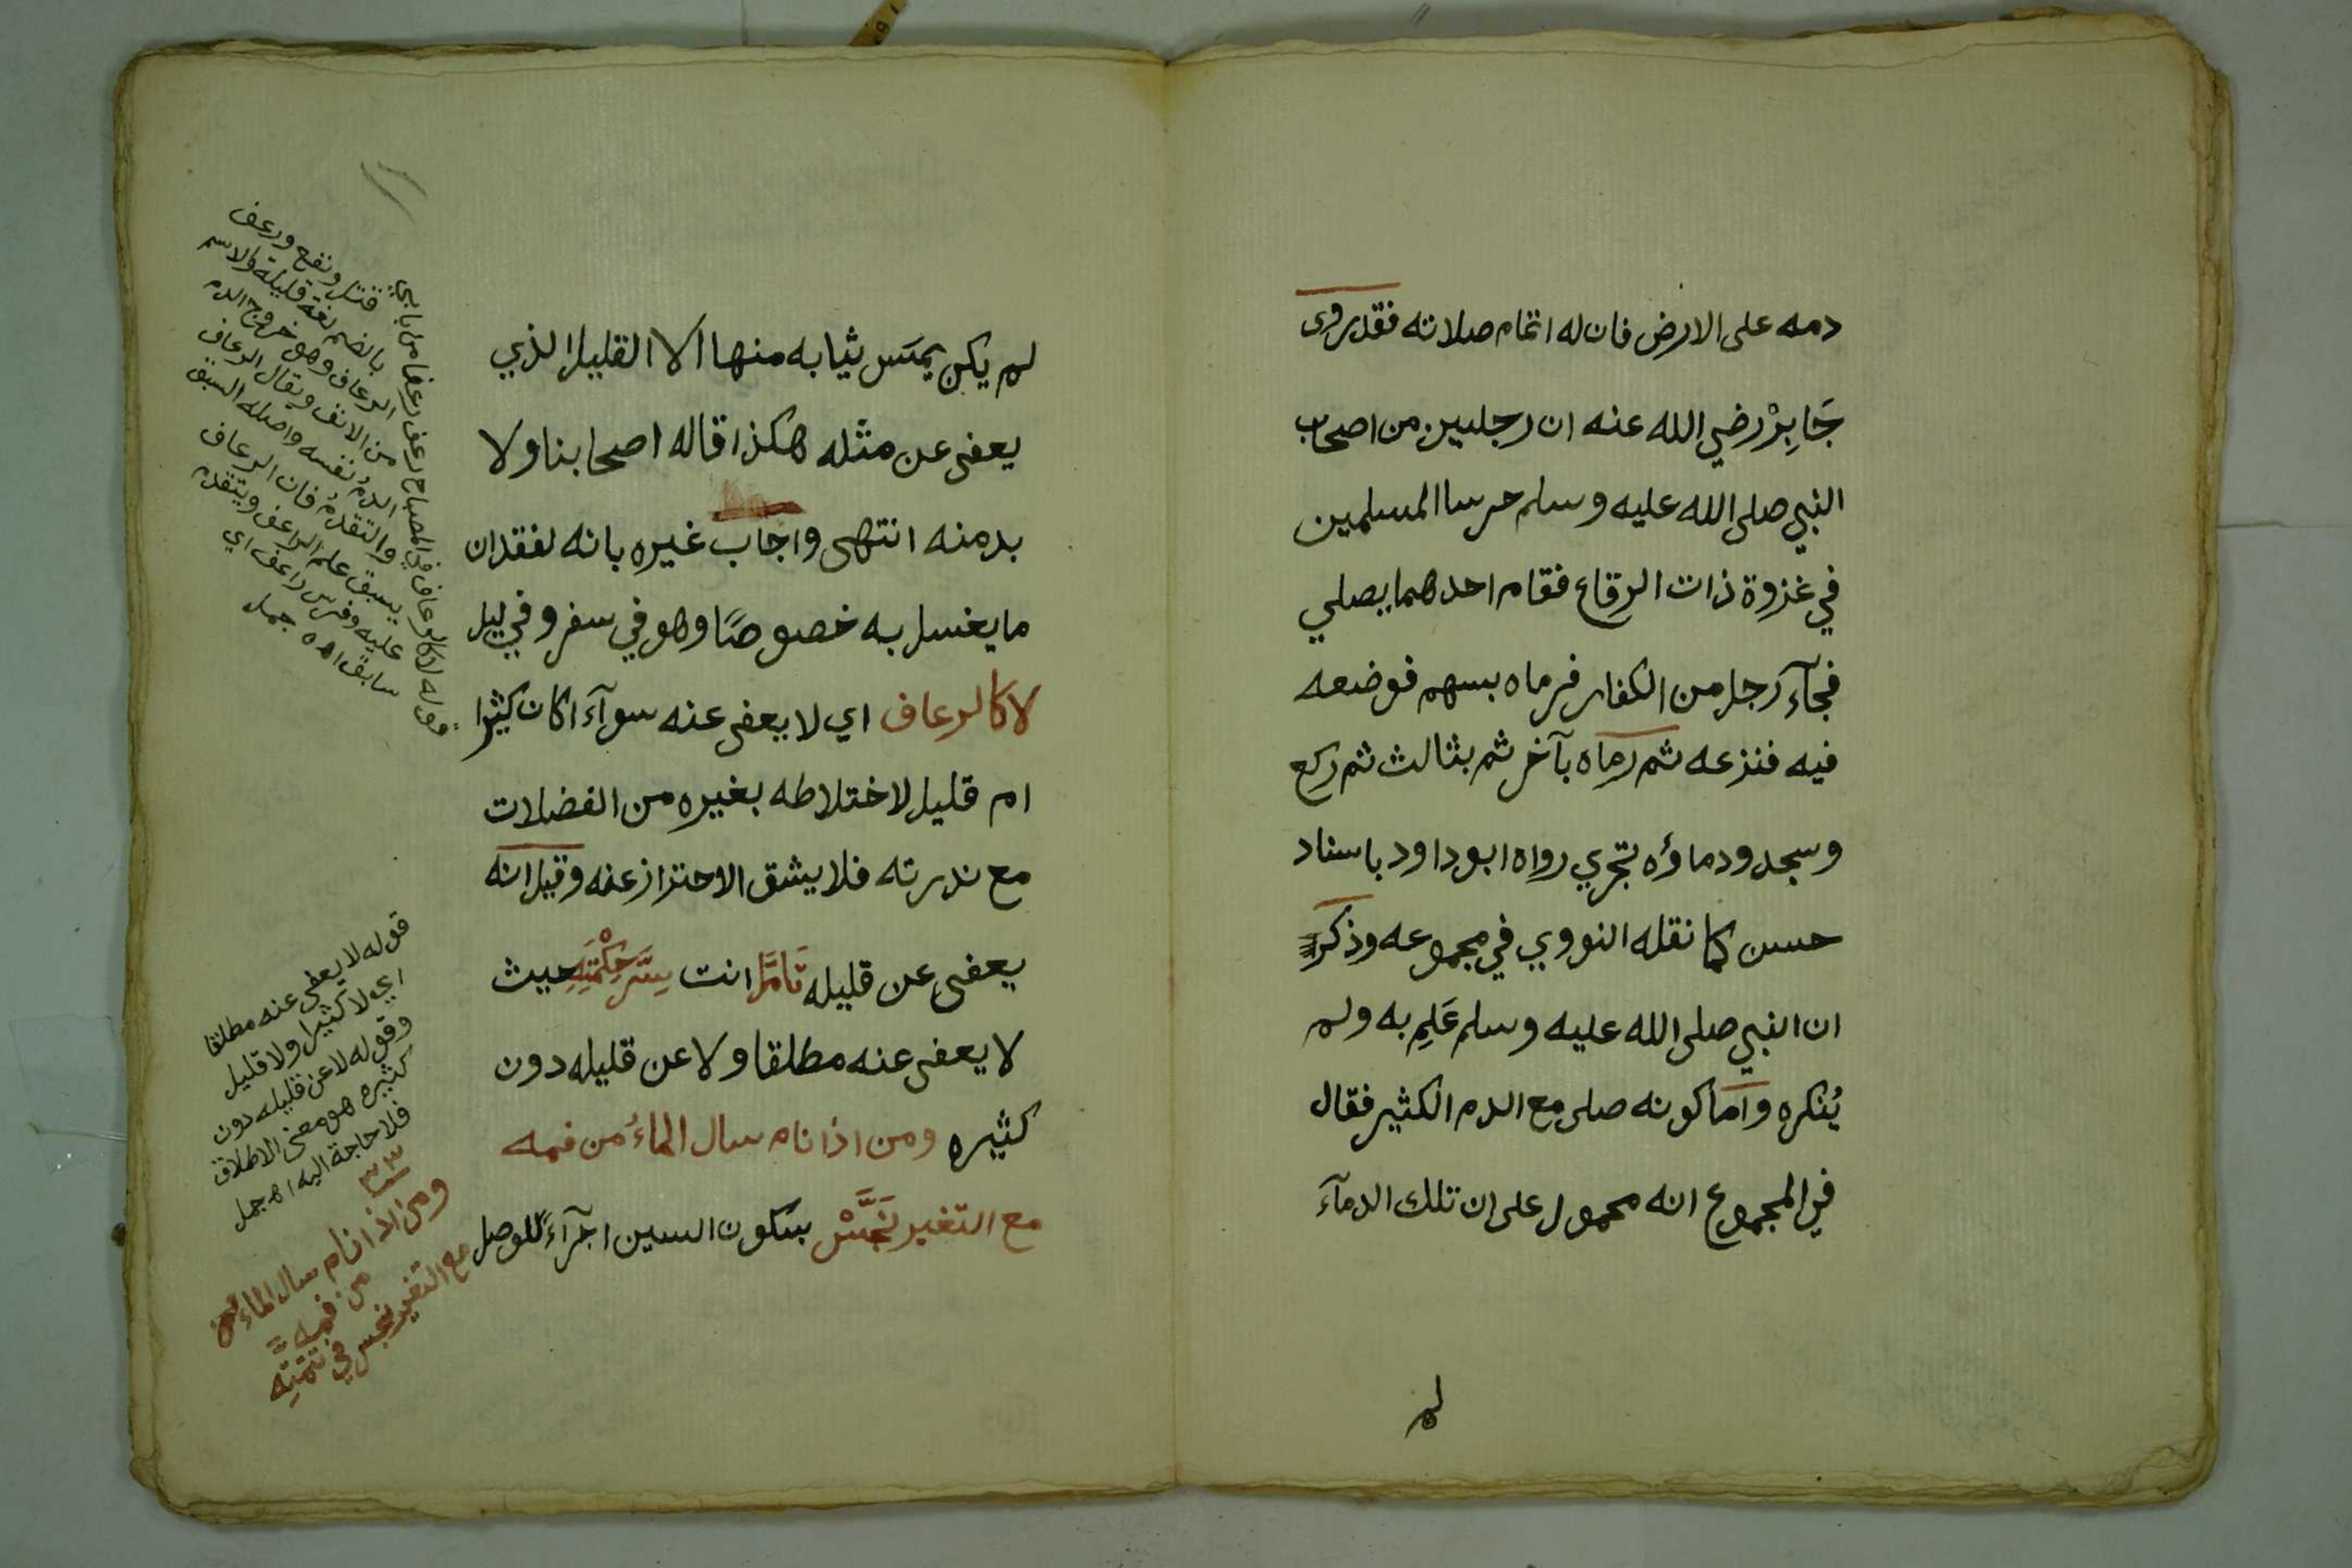 دمه على الارض فان له اتمام صلاته فقد روى
جَابِرْ رضي الله عنه ان رجلين من اصحاب
النبي صلى الله عليه وسلم حرسا المسلمين
في غزوة ذات الرقاع فقام احدهما يصلي
فجآء رجل من الكفار فرماه بسهم فوضعه
فيه فنزعه ثم رماه بآخر ثم بثالث ثم ركع
وسجد ودماؤه تجري رواه ابوداود باسناد
حسن كما نقله النووي في مجموعه وذكر
ان النبي صلى الله عليه وسلم عَلِم به ولم
يُنكره واما كونه صلى مع الدم الكثير فقال
في المجموع انه محمول على ان تلك الدمآء
لم
لم يكن يمسّ ثيابه منها الا القليل الذي
يعفى عن مثله هكذا قاله اصحابنا ولا
بد منه انتهى واجاب غيره بانه لفقدان
ما يغسل به خصوصًا وهو في سفر وفي ليل
لا كالرعاف اي لا يعفى عنه سوآء اكان كثيرا
ام قليل لاختلاطه بغيره من الفضلات
مع ندرته فلا يشق الاحتراز عنه وقيل انه
يعفى عن قليله تَامَّل انت سِرَّ حِكْمَتِهِ حيث
لا يعفى عنه مطلقا ولا عن قليله دون
كثيره ومن اذا نام سال الماءُ من فمه
مع التغير نَجَّسْ بسكون السين اجرآءً للوصل
قوله لا كالرعاف في المصباح رعف رعفا من بابي
قتل ونفع ورعف
بالضم لغة قليلة والاسم
الرعاف وهو خروج الدم
من الانف ويقال الرعاف
الدمُ نفسه واصله السبق
والتقدمُ فان الرعاف
يسبق علم الراعف ويتقدم
عليه وفرس راعف اي
سابق اه جمل
قوله لا يعفى عنه مطلقا
اي لا كثيرا ولا قليل
وقوله لا عن قليله دون
كثيره هو معنى الاطلاق
فلا حاجة اليه اه جمل
٣٣
ومن اذا نام سال الماءُ
من فمه
مع التغير نجس في تتمته